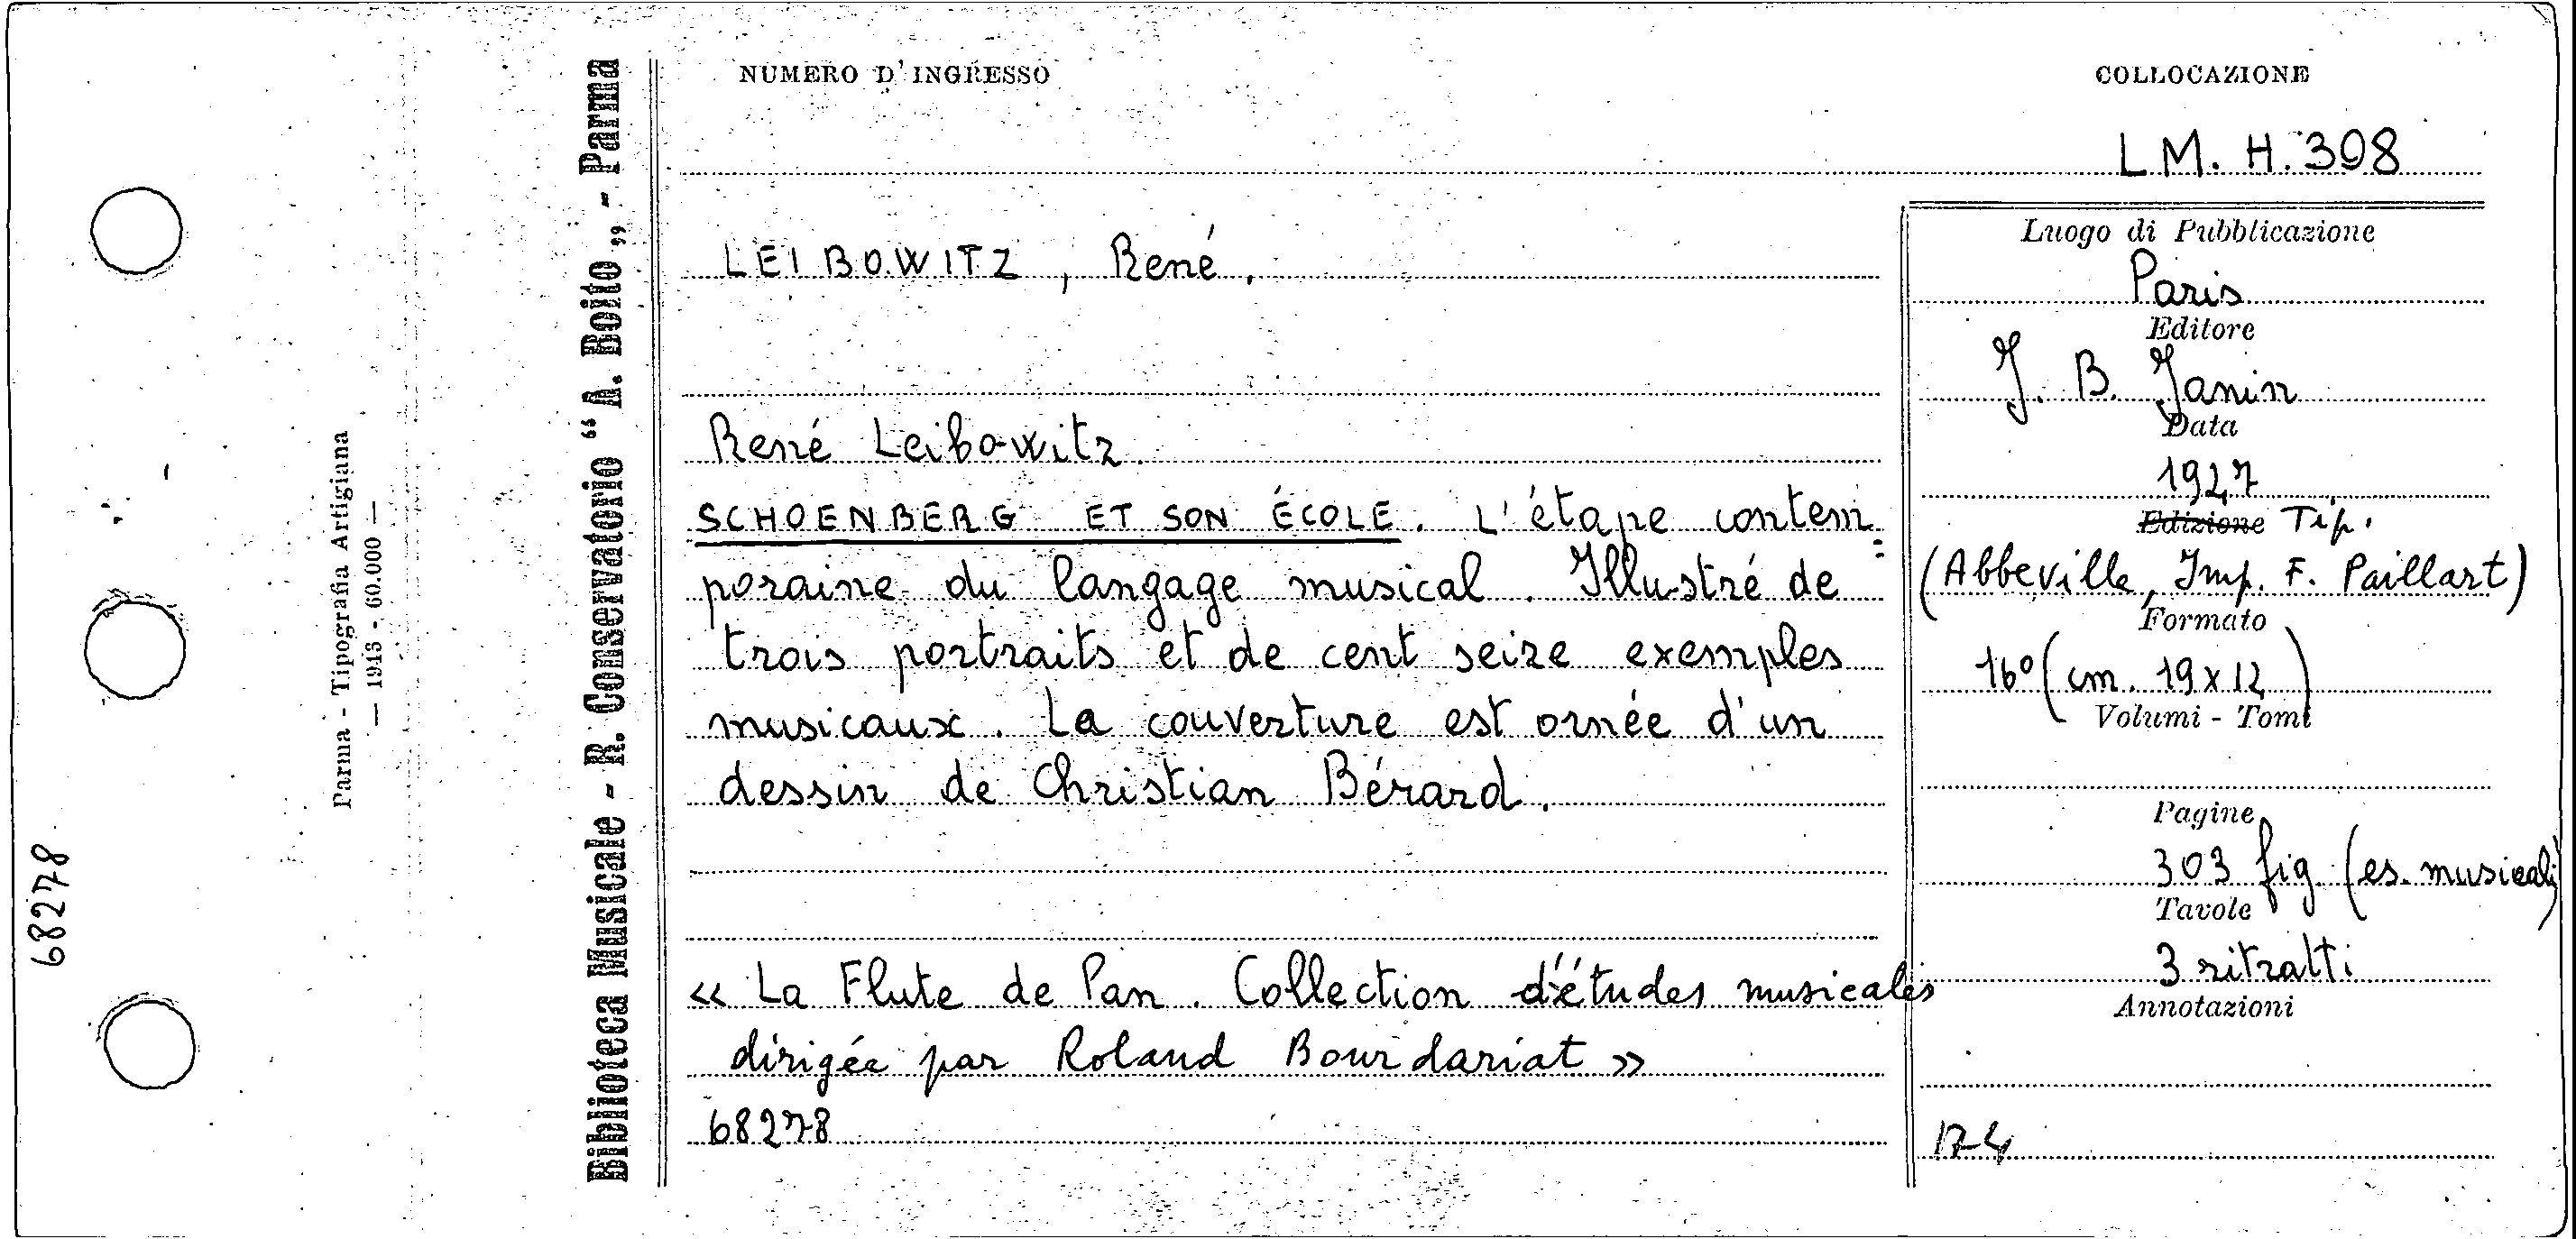 NUMERO D'INGRESSO
COLLOCAZIONE
LM. H. 308
LEIBOWITZ, René.
René Leibowitz
SCHOENBERG ET SON ÉCOLE. L'étape contem=
poraine du langage musical. Illustré de
trois portraits et de cent seize exemples
musicaux. La couverture est ornée d'un
dessin de Christian Bérard.
« La Flute de Pan. Collection d'études musicales
dirigée par Roland Bourdariat »
68278
Luogo di Pubblicazione
Paris
Editore
J. B. Janin
Data
1927
Edizione Tip.
(Abbeville, Imp. F. Paillart)
Formato
16° (cm. 19x12)
Volumi - Tomi
Pagine
303 fig (es. musicali)
Tavole
3 ritratti
Annotazioni
Biblioteca Musicale - R. Conservatorio "A. Boito„ - Parma
Parma - Tipografia Artigiana
— 1943 - 60.000 —
68278